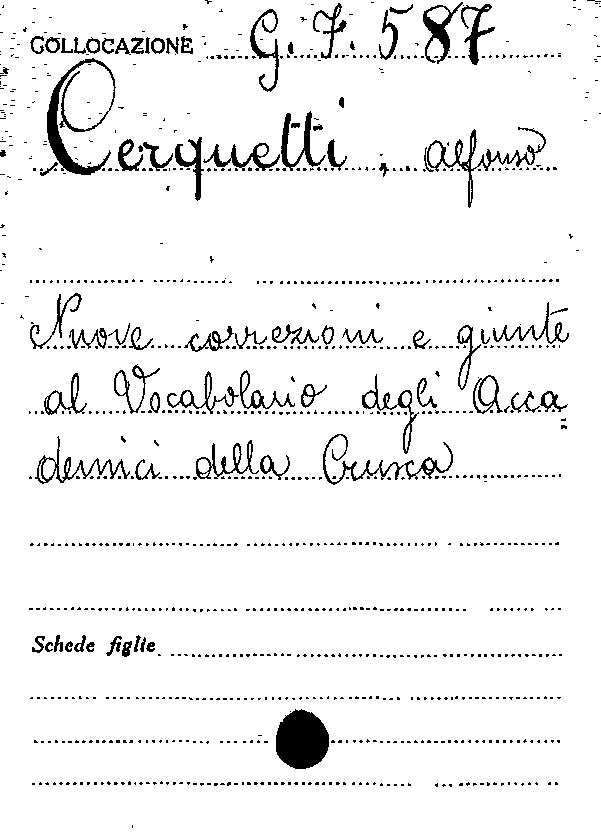 COLLOCAZIONE G. F. 587
Cerquetti, Alfonso
Nuove correzioni e giunte
al Vocabolario degli Acca=
demici della Crusca
Schede figlie